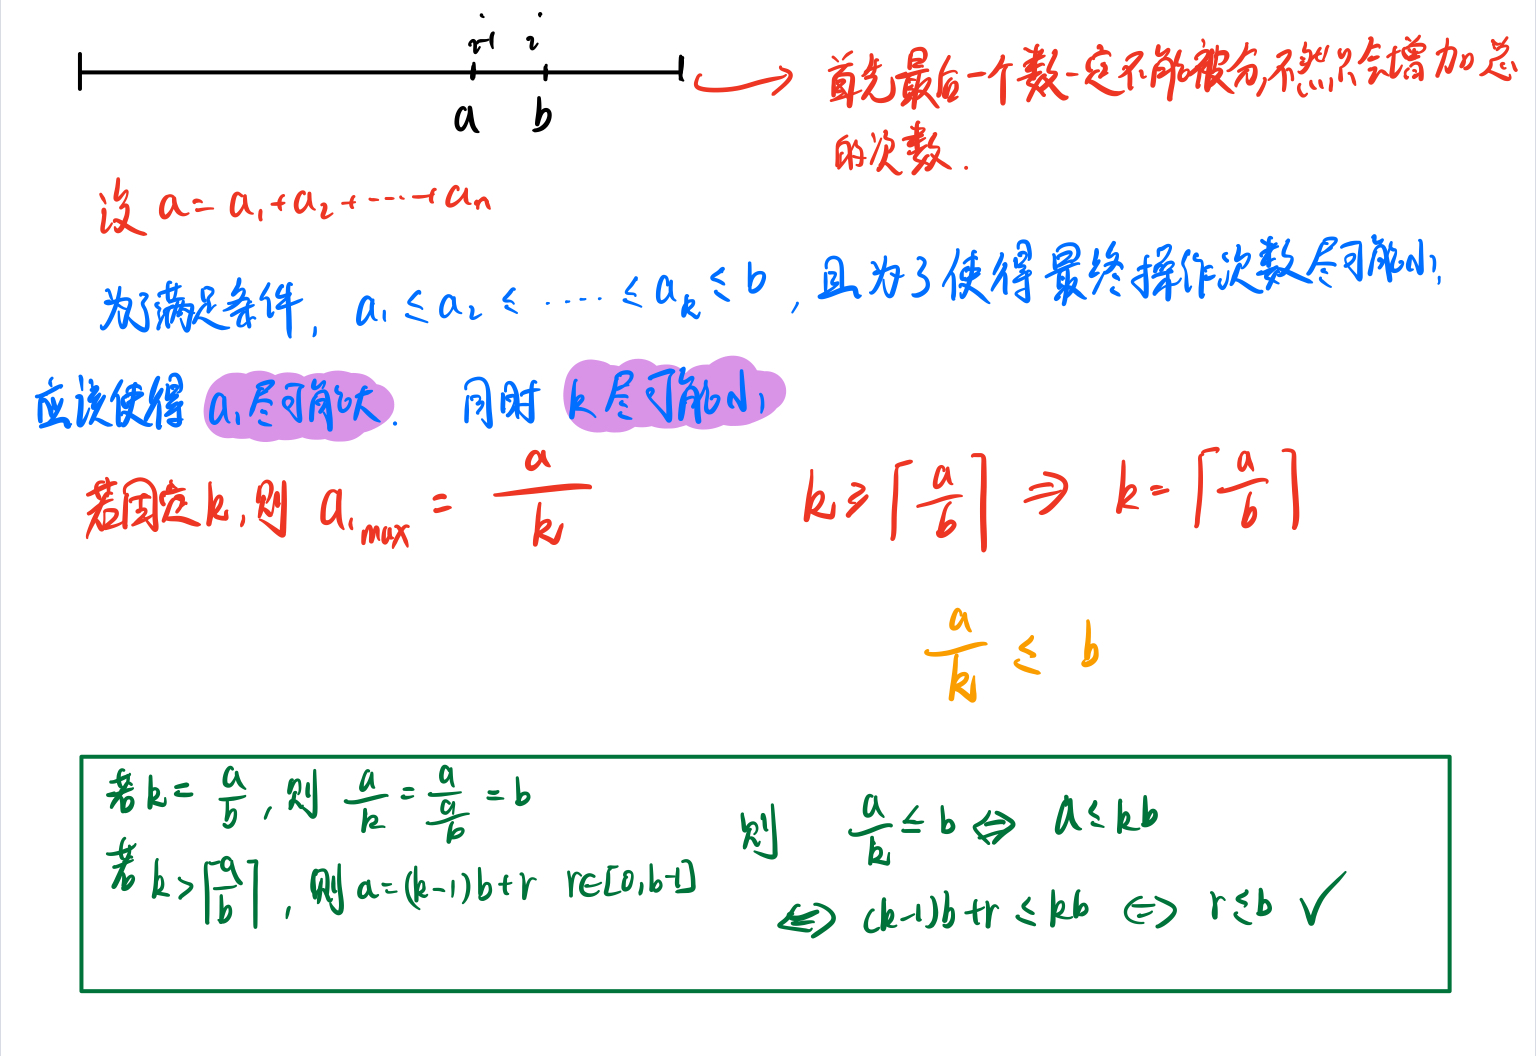 i-1 i
a b
首先最后一个数一定不能被分,不然只会增加总
的次数.
设 a = a₁+a₂+······+aₙ
为了满足条件, a₁ ≤ a₂ ≤ ····· ≤ aₖ ≤ b , 且为了使得最终操作次数尽可能小,
应该使得 a₁尽可能大. 同时 k 尽可能小,
若固定k,则 a₁ₘₐₓ = a/k k ≥ ⌈a/b⌉ ⇒ k = ⌈a/b⌉
a/k ≤ b
若 k = a/b , 则 a/k = a/(a/b) = b
若 k > ⌈a/b⌉ , 则 a=(k-1)b+r r∈[0,b-1]
则 a/k ≤ b ⇔ a ≤ kb
⇔ (k-1)b+r ≤ kb ⇔ r ≤ b ✓